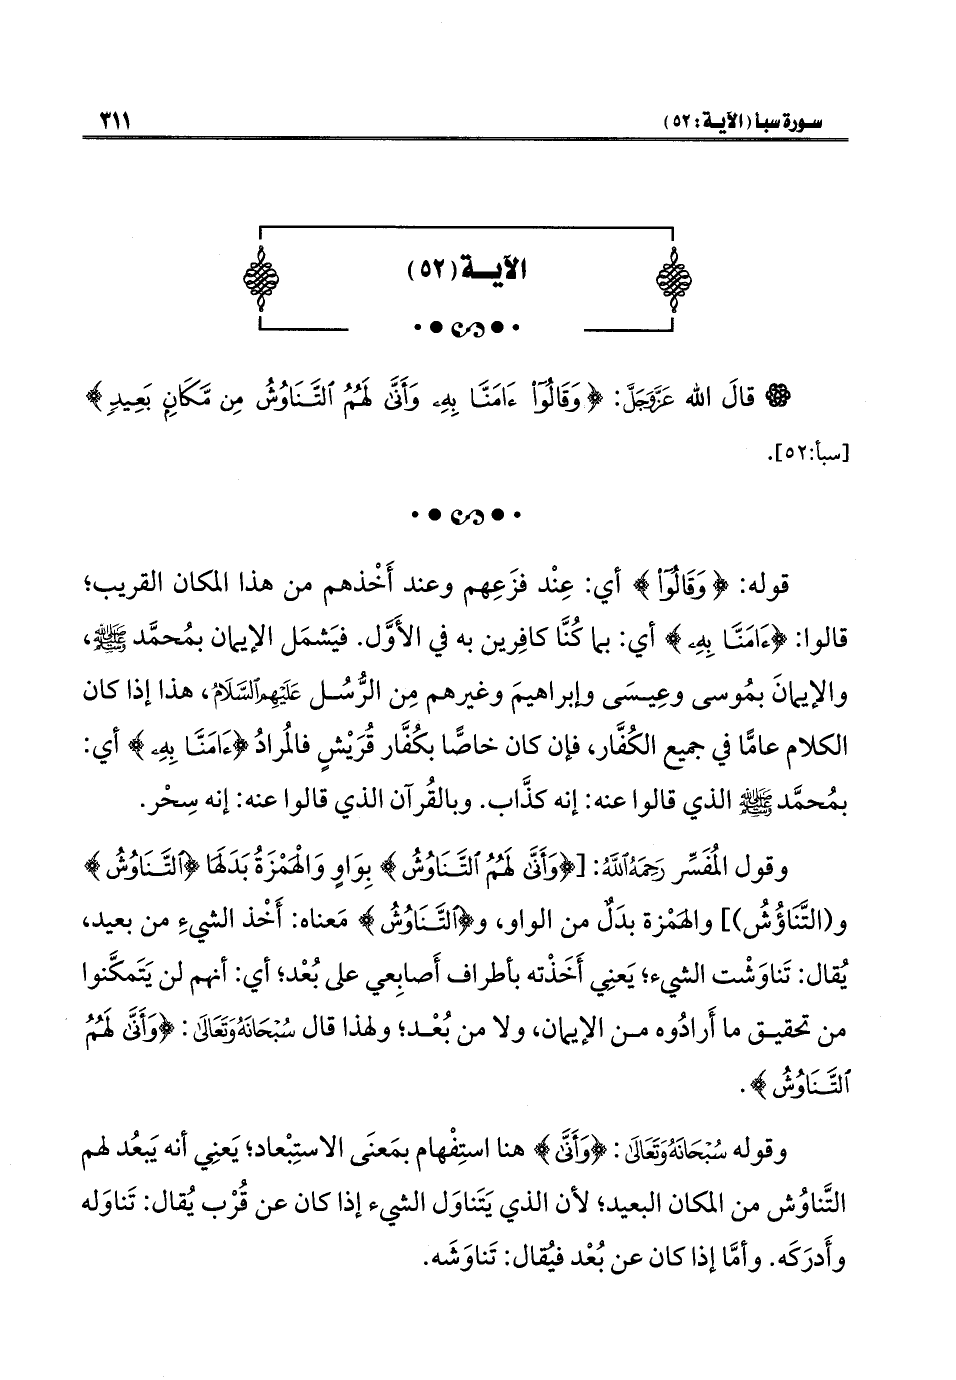 سورة سبأ (الآية: ٥٢) ٣١١
الآيــة (٥٢)
قالَ الله عَزَّوَجَلَّ: ﴿وَقَالُوٓا۟ ءَامَنَّا بِهِۦ وَأَنَّىٰ لَهُمُ ٱلتَّنَاوُشُ مِن مَّكَانٍۭ بَعِيدٍ﴾
[سبأ:٥٢].
قوله: ﴿وَقَالُوٓا۟﴾ أي: عِنْد فزَعِهم وعند أَخْذهم من هذا المكان القريب؛
قالوا: ﴿ءَامَنَّا بِهِۦ﴾ أي: بما كُنَّا كافِرين به في الأوَّل. فيَشمَل الإيمان بمُحمَّد ﷺ،
والإيمانَ بمُوسى وعِيسَى وإبراهيمَ وغيرهم مِن الرُّسُل عَلَيْهِمُ السَّلَامُ، هذا إذا كان
الكلام عامًّا في جميع الكُفَّار، فإن كان خاصًّا بكُفَّار قُرَيْشٍ فالمُرادُ ﴿ءَامَنَّا بِهِۦ﴾ أي:
بمُحمَّد ﷺ الذي قالوا عنه: إنه كذَّاب. وبالقُرآن الذي قالوا عنه: إنه سِحْر.
وقول المُفَسِّر رَحِمَهُ اللَّهُ: [﴿وَأَنَّىٰ لَهُمُ ٱلتَّنَاوُشُ﴾ بِوَاوٍ وَالْهَمْزَةُ بَدَلَهَا ﴿ٱلتَّنَاوُشُ﴾
و(التَّنَاؤُشُ)] والهَمْزة بدَلٌ من الواو، و﴿ٱلتَّنَاوُشُ﴾ مَعناه: أَخْذ الشيءِ من بعيد،
يُقال: تَناوَشْت الشيء؛ يَعنِي أَخَذْته بأطراف أَصابِعي على بُعْد؛ أي: أنهم لن يَتَمكَّنوا
من تحقيق ما أَرادُوه من الإيمان، ولا من بُعْد؛ ولهذا قال سُبْحَانَهُ وَتَعَالَى: ﴿وَأَنَّىٰ لَهُمُ
ٱلتَّنَاوُشُ﴾.
وقوله سُبْحَانَهُ وَتَعَالَى: ﴿وَأَنَّىٰ﴾ هنا استِفْهام بمَعنَى الاستِبْعاد؛ يَعنِي أنه يَبعُد لهم
التَّناوُش من المكان البعيد؛ لأن الذي يَتَناوَل الشيء إذا كان عن قُرْب يُقال: تَناوَله
وأَدرَكَه. وأمَّا إذا كان عن بُعْد فيُقال: تَناوَشَه.